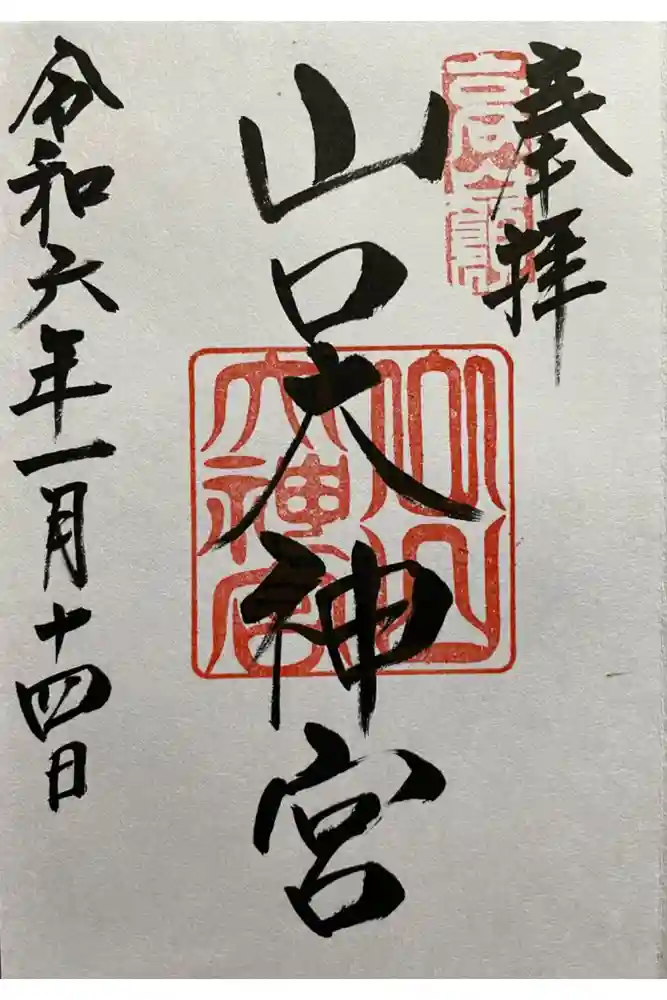 奉拝
山口大神宮
令和六年一月十四日
山口大神宮